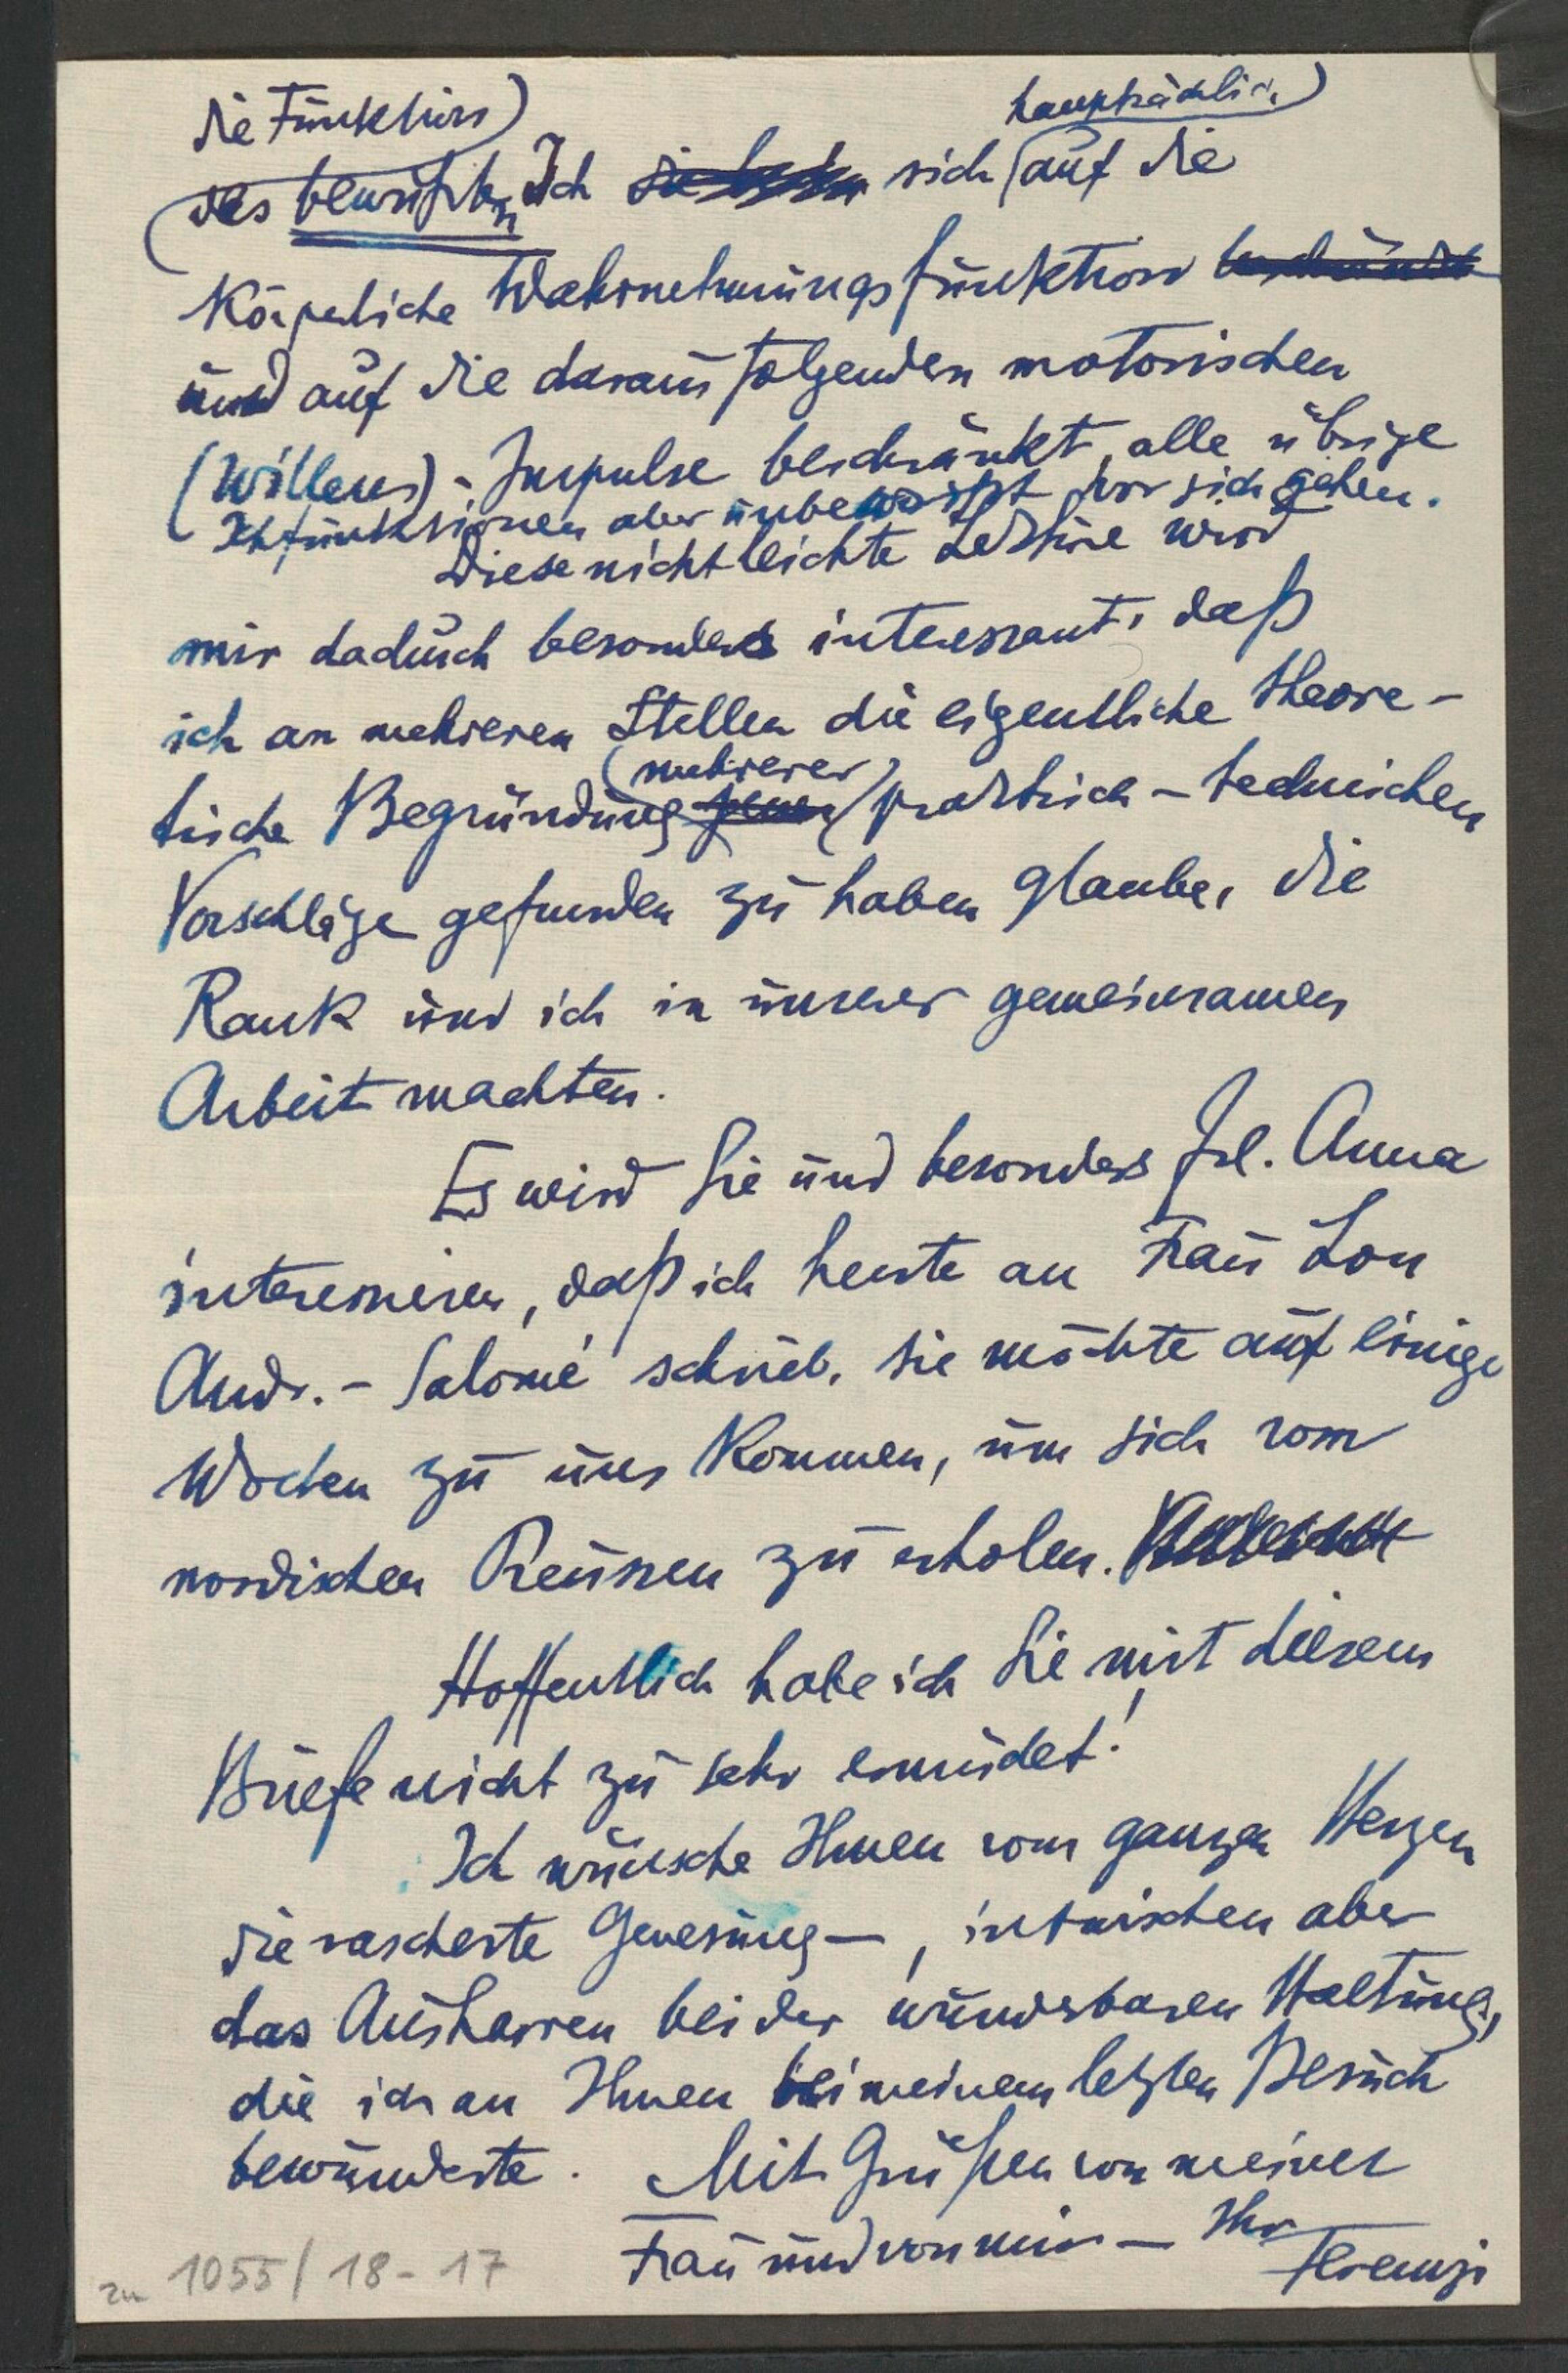 die Funktion
hauptsächlich
des bewußten Ich sich auf die
Körperliche Wahrnehmungsfunktion beschränkt
und auf die daraus folgenden motorischen
(Willens)-Impulse beschränkt, alle übrige
Ichfunktionen aber unbewußt vor sich gehen.
Diese nicht leichte Lektüre wird
mir dadurch besonders interessant, daß
ich an mehreren Stellen die eigentliche theore-
mehrerer
tische Begründung jener praktisch-technischen
Vorschläge gefunden zu haben glaube, die
Rank und ich in unserer gemeinsamen
Arbeit machten.
Es wird Sie und besonders Frl. Anna
interessiren, daß ich heute an Frau Lou
Andr.-Salomé schrieb, sie möchte auf einige
Wochen zu uns Kommen, um sich vom
nordischen Reussen zu erholen.
Hoffentlich habe ich Sie mit diesem
Briefe nicht zu sehr ermüdet!
Ich wünsche Ihnen vom ganzen Herzen
die rascheste Genesung —, intwischen aber
das Ausharren bei der wunderbaren Haltung,
die ich an Ihnen bei meinem letzten Besuch
bewunderte. Mit Grüßen von meiner
Frau und von mir — Ihr
Ferenczi
zu 1055/18-17